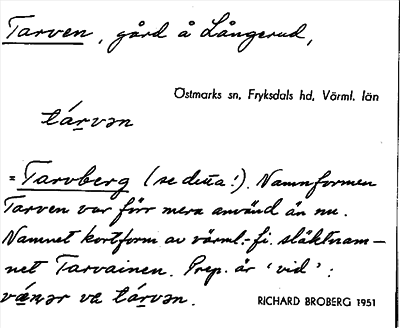 Tarven, gård å Långerud,
Östmarks sn, Fryksdals hd, Värml. län
tárvən
= Tarvberg (se detta!). Namnformen
Tarven var förr mera använd än nu.
Namnet kortform av värml.-fi. släktnam-
net Tarvainen. Prep. är 'vid':
vä́nər va tárvən.
RICHARD BROBERG 1951